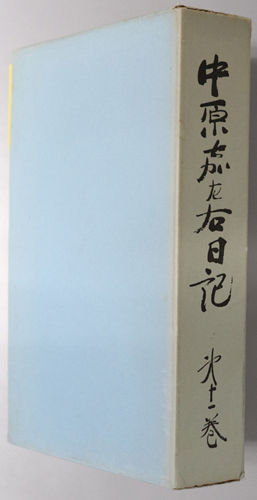 中原嘉左右日記
第十一巻